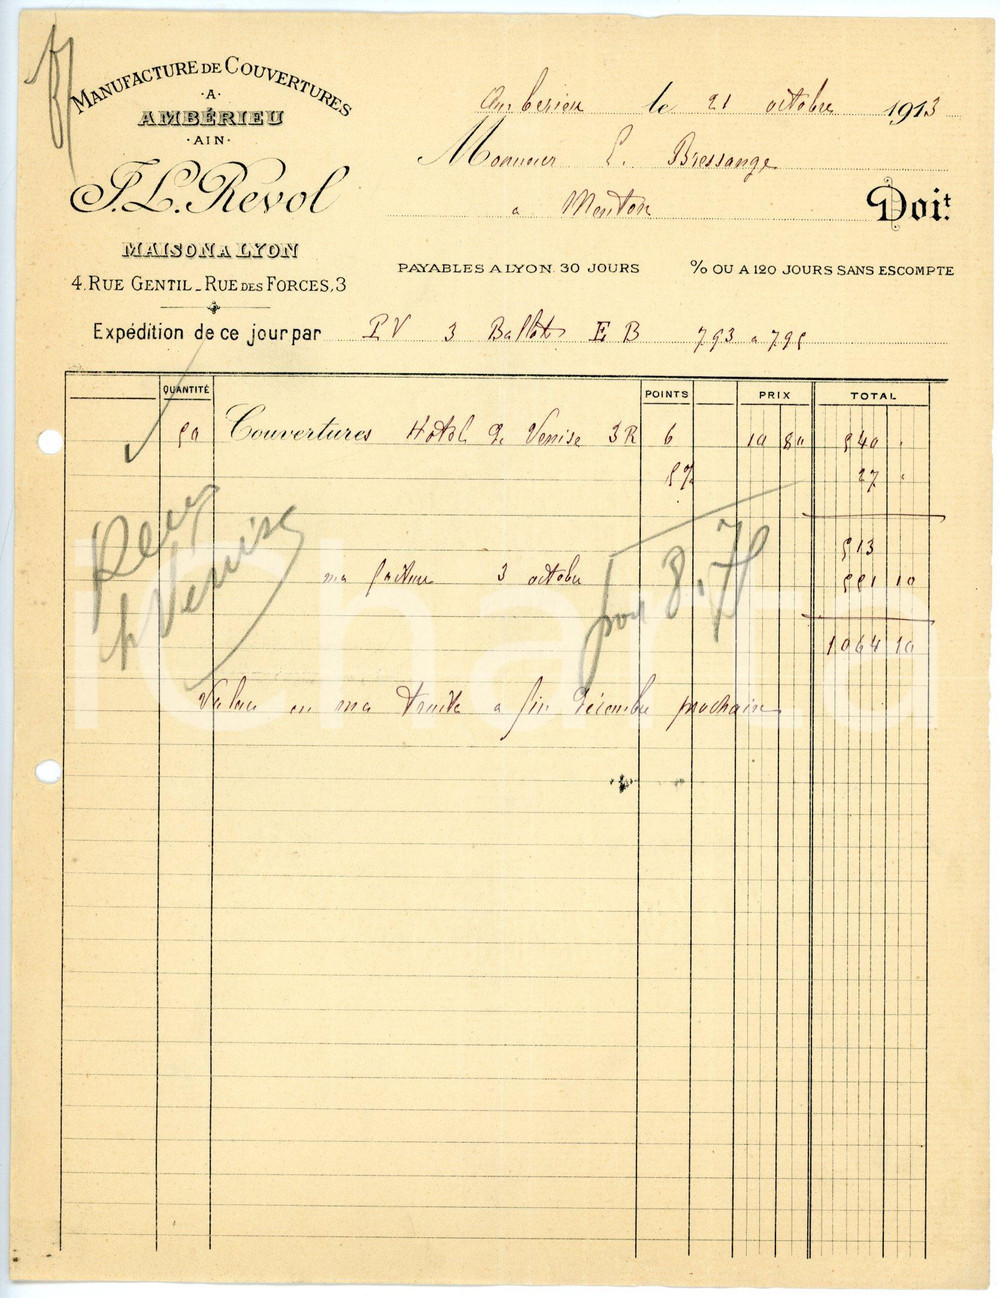 MANUFACTURE DE COUVERTURES
·A·
AMBÉRIEU
·AIN·
F. L. Revol
MAISON A LYON
4, RUE GENTIL - RUE DES FORCES, 3
Amberieu le 21 octobre 1913
Monsieur E. Bressange
a Menton Doit
PAYABLES A LYON. 30 JOURS % OU A 120 JOURS SANS ESCOMPTE
Expédition de ce jour par PV 3 Ballots EB 793 a 795
QUANTITÉ POINTS PRIX TOTAL
50 Couvertures Hotel de Venise 3R 6 10 80 540 "
5% 27 "
513
ma facture 3 octobre 551 10
1064 10
Recu
h Venise
port 8.70
Valeur en ma traite a fin Décembre prochain
iCharta